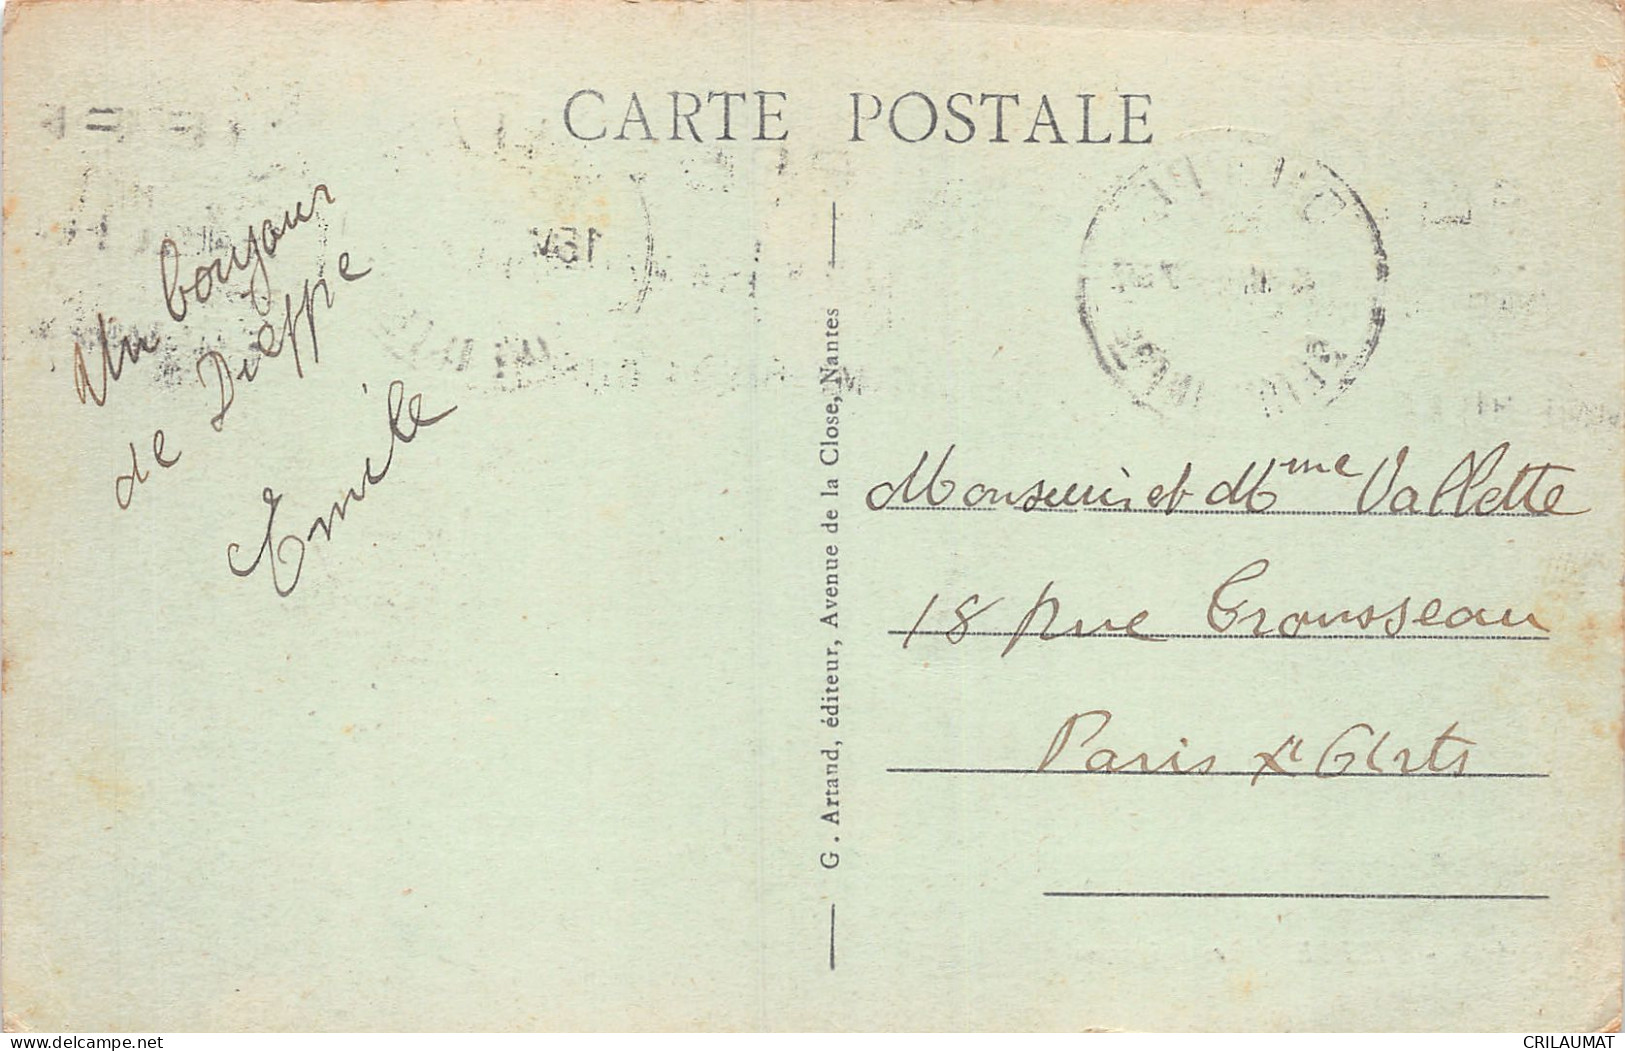 CARTE POSTALE
Un bonjour
de Dieppe
Emile
G. Artand, éditeur, Avenue de la Close, Nantes
Monsieur et Mme Vallette
18 Rue Trousseau
Paris XI Arts
www.delcampe.net
CRILAUMAT